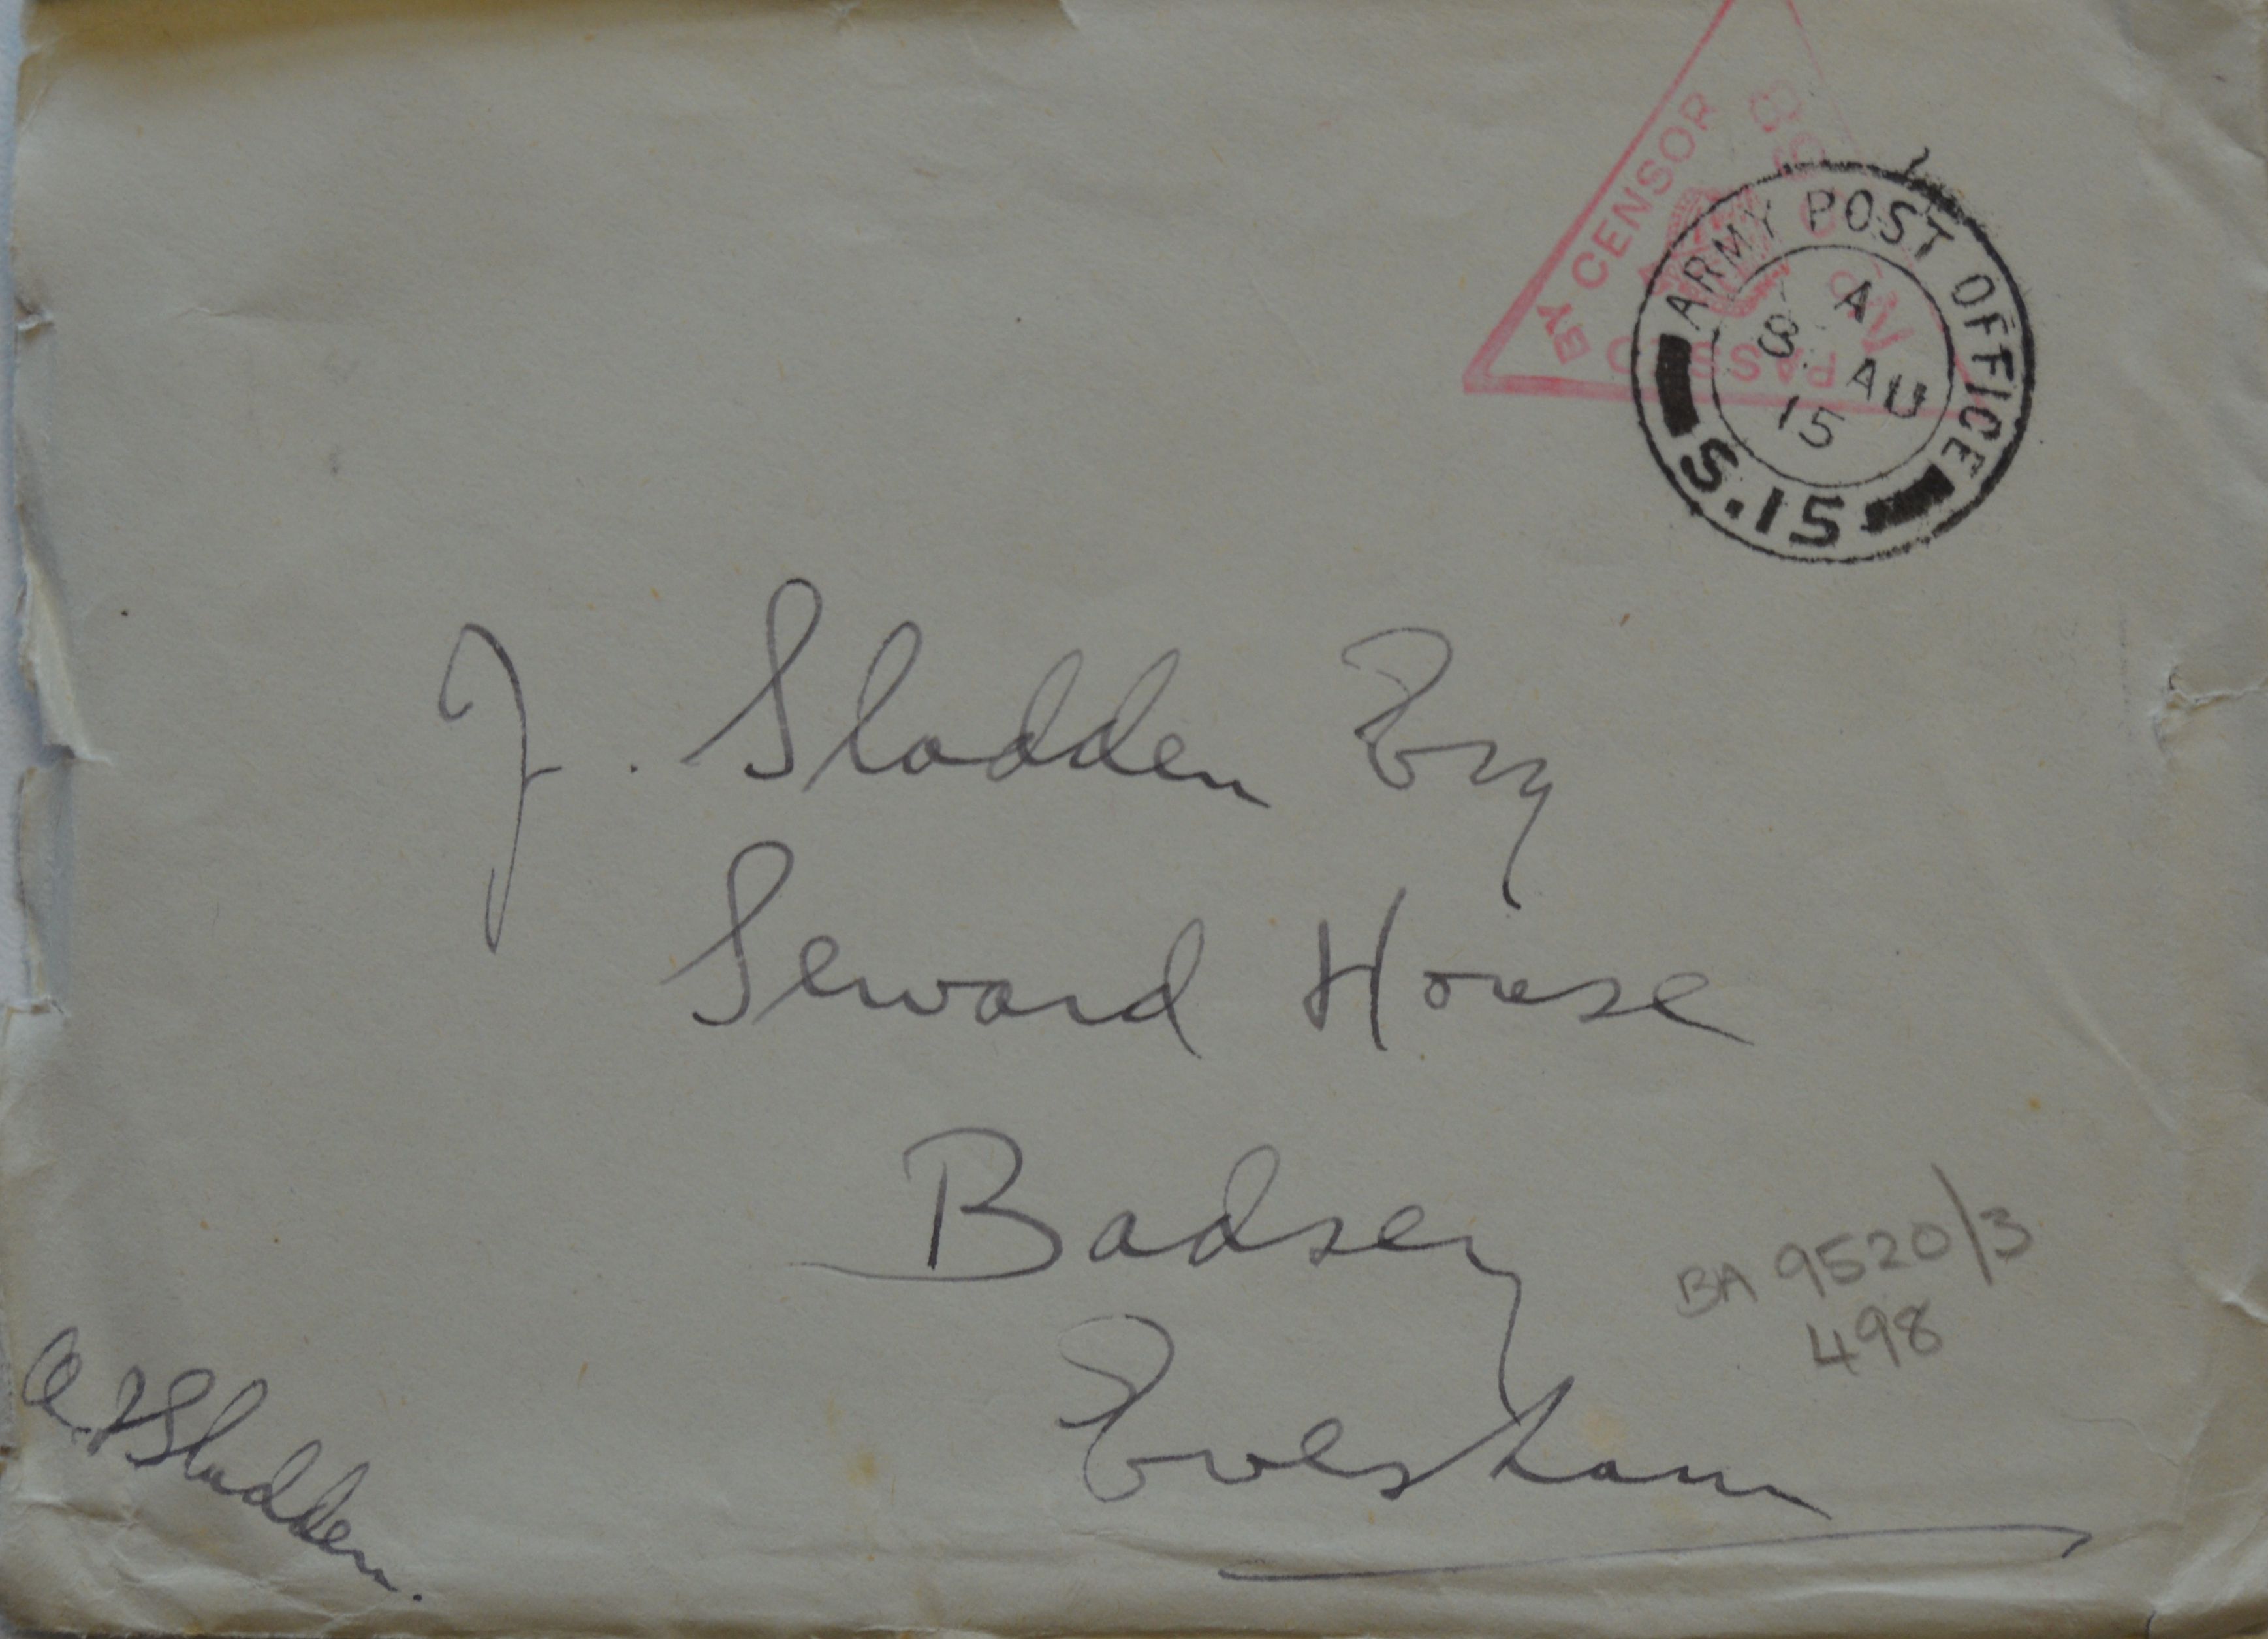 PASSED BY CENSOR
ARMY POST OFFICE
A
8 AU
15
S.15
J. Sladden Esq
Seward House
Badsey
Evesham
BA 9520/3
498
A. F Sladden.